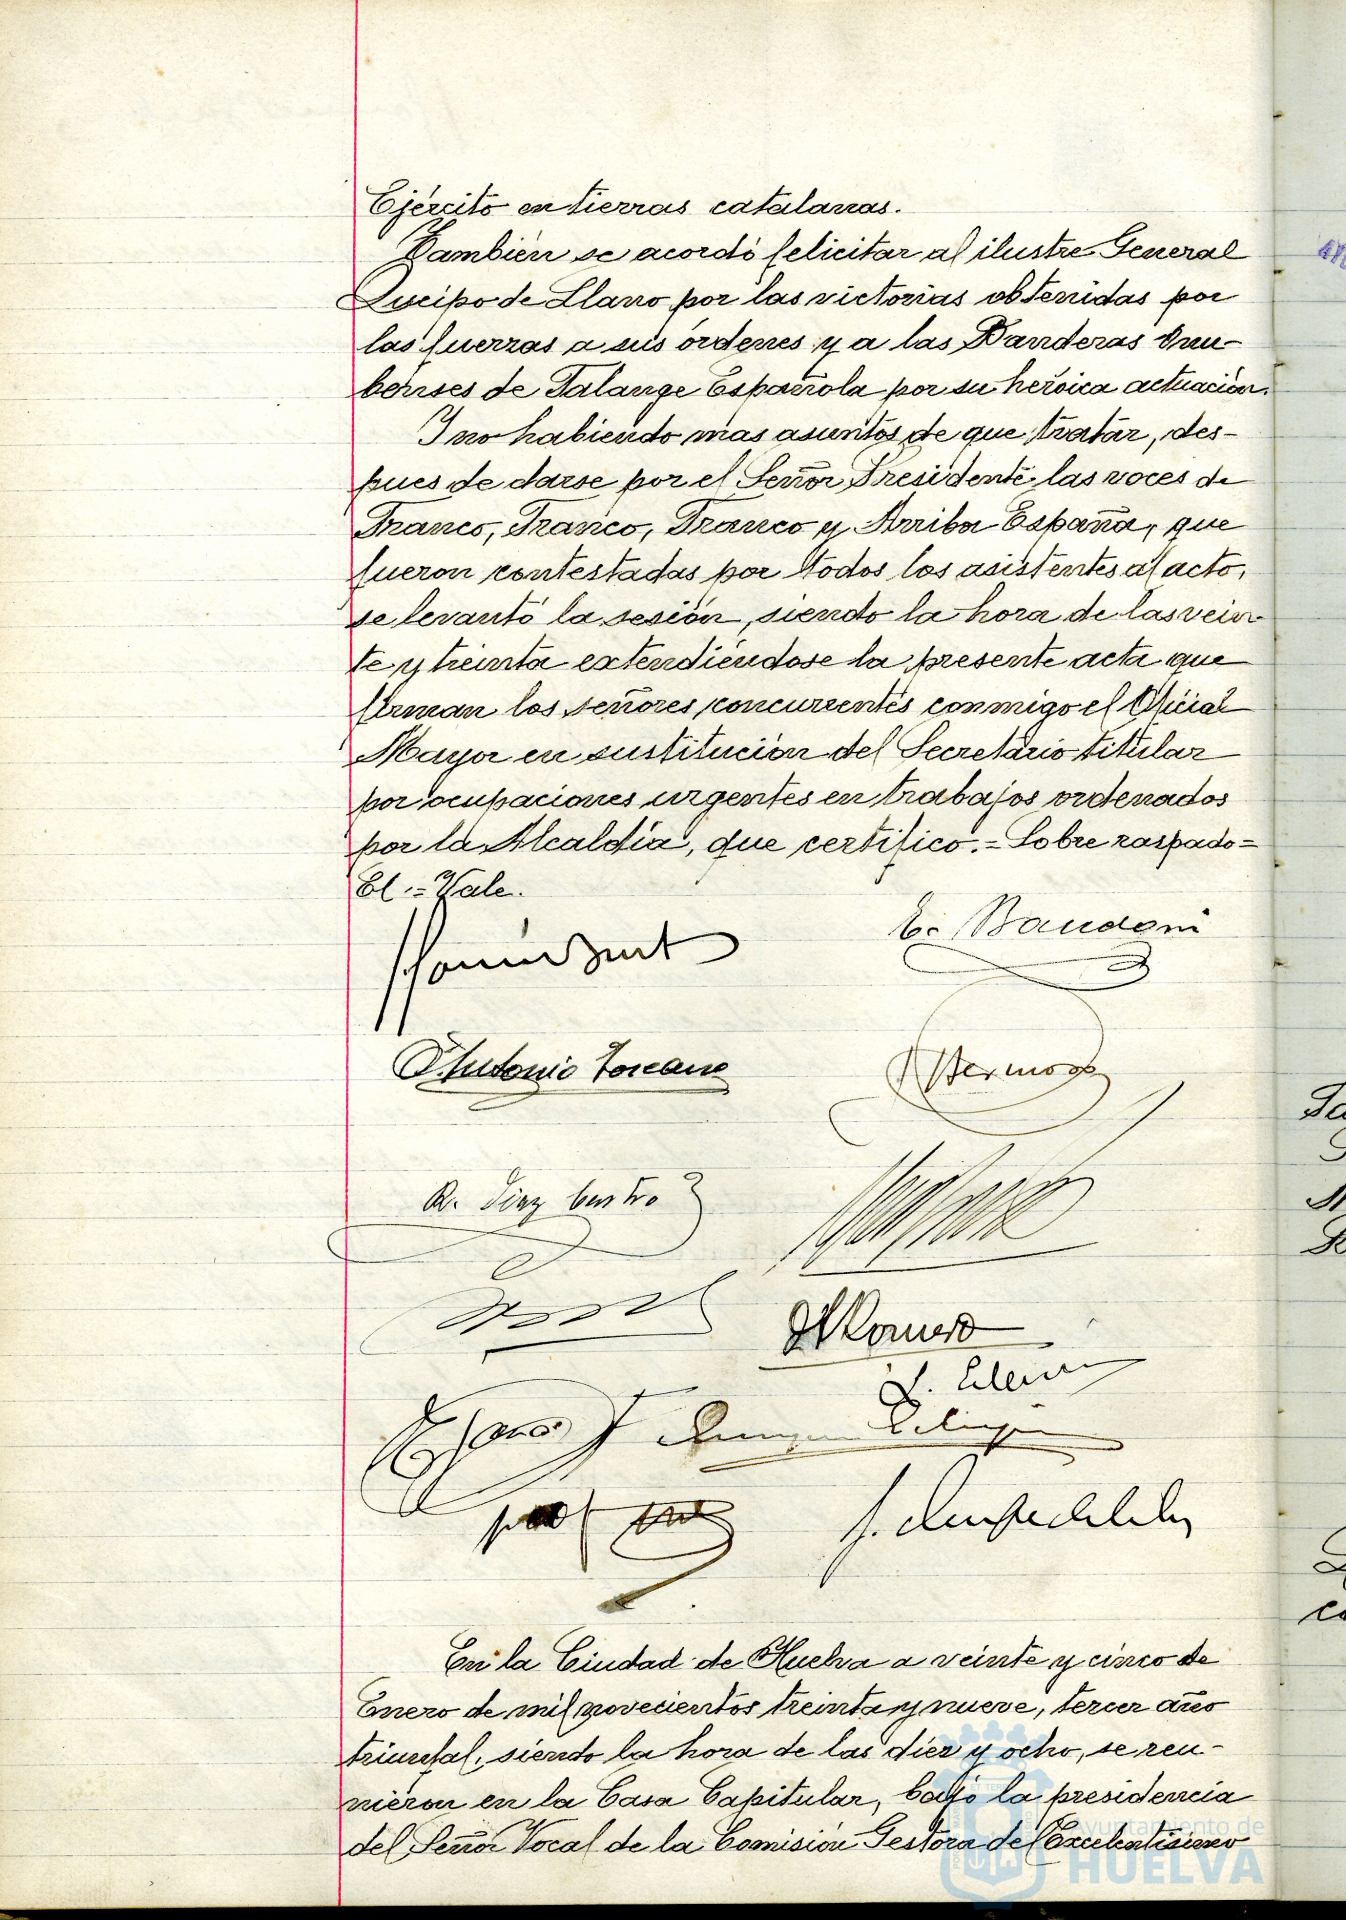 Ejército en tierras catalanas.
También se acordó felicitar al ilustre General
Queipo de Llano por las victorias obtenidas por
las fuerzas a sus órdenes y a las Banderas Onu-
benses de Falange Española por su heroica actuación.
Y no habiendo mas asuntos de que tratar, des-
pues de darse por el Señor Presidente las voces de
Franco, Franco, Franco y Arriba España, que
fueron contestadas por todos los asistentes al acto,
se levantó la sesión, siendo la hora de las vein-
te y treinta extendiéndose la presente acta que
firman los señores concurrentes conmigo el Oficial
Mayor en sustitución del Secretario titular
por ocupaciones urgentes en trabajos ordenados
por la Alcaldía, que certifico.= Sobre raspado=
El.=Vale.
Antonio Toscano
Hermoso
R. Diaz Castro
Romero
En la Ciudad de Huelva a veinte y cinco de
Enero de mil novecientos treinta y nueve, tercer año
triunfal, siendo la hora de las diez y ocho, se reu-
nieron en la Casa Capitular, bajo la presidencia
del Señor Vocal de la Comisión Gestora del Excelentísimo
Ayuntamiento de
HUELVA